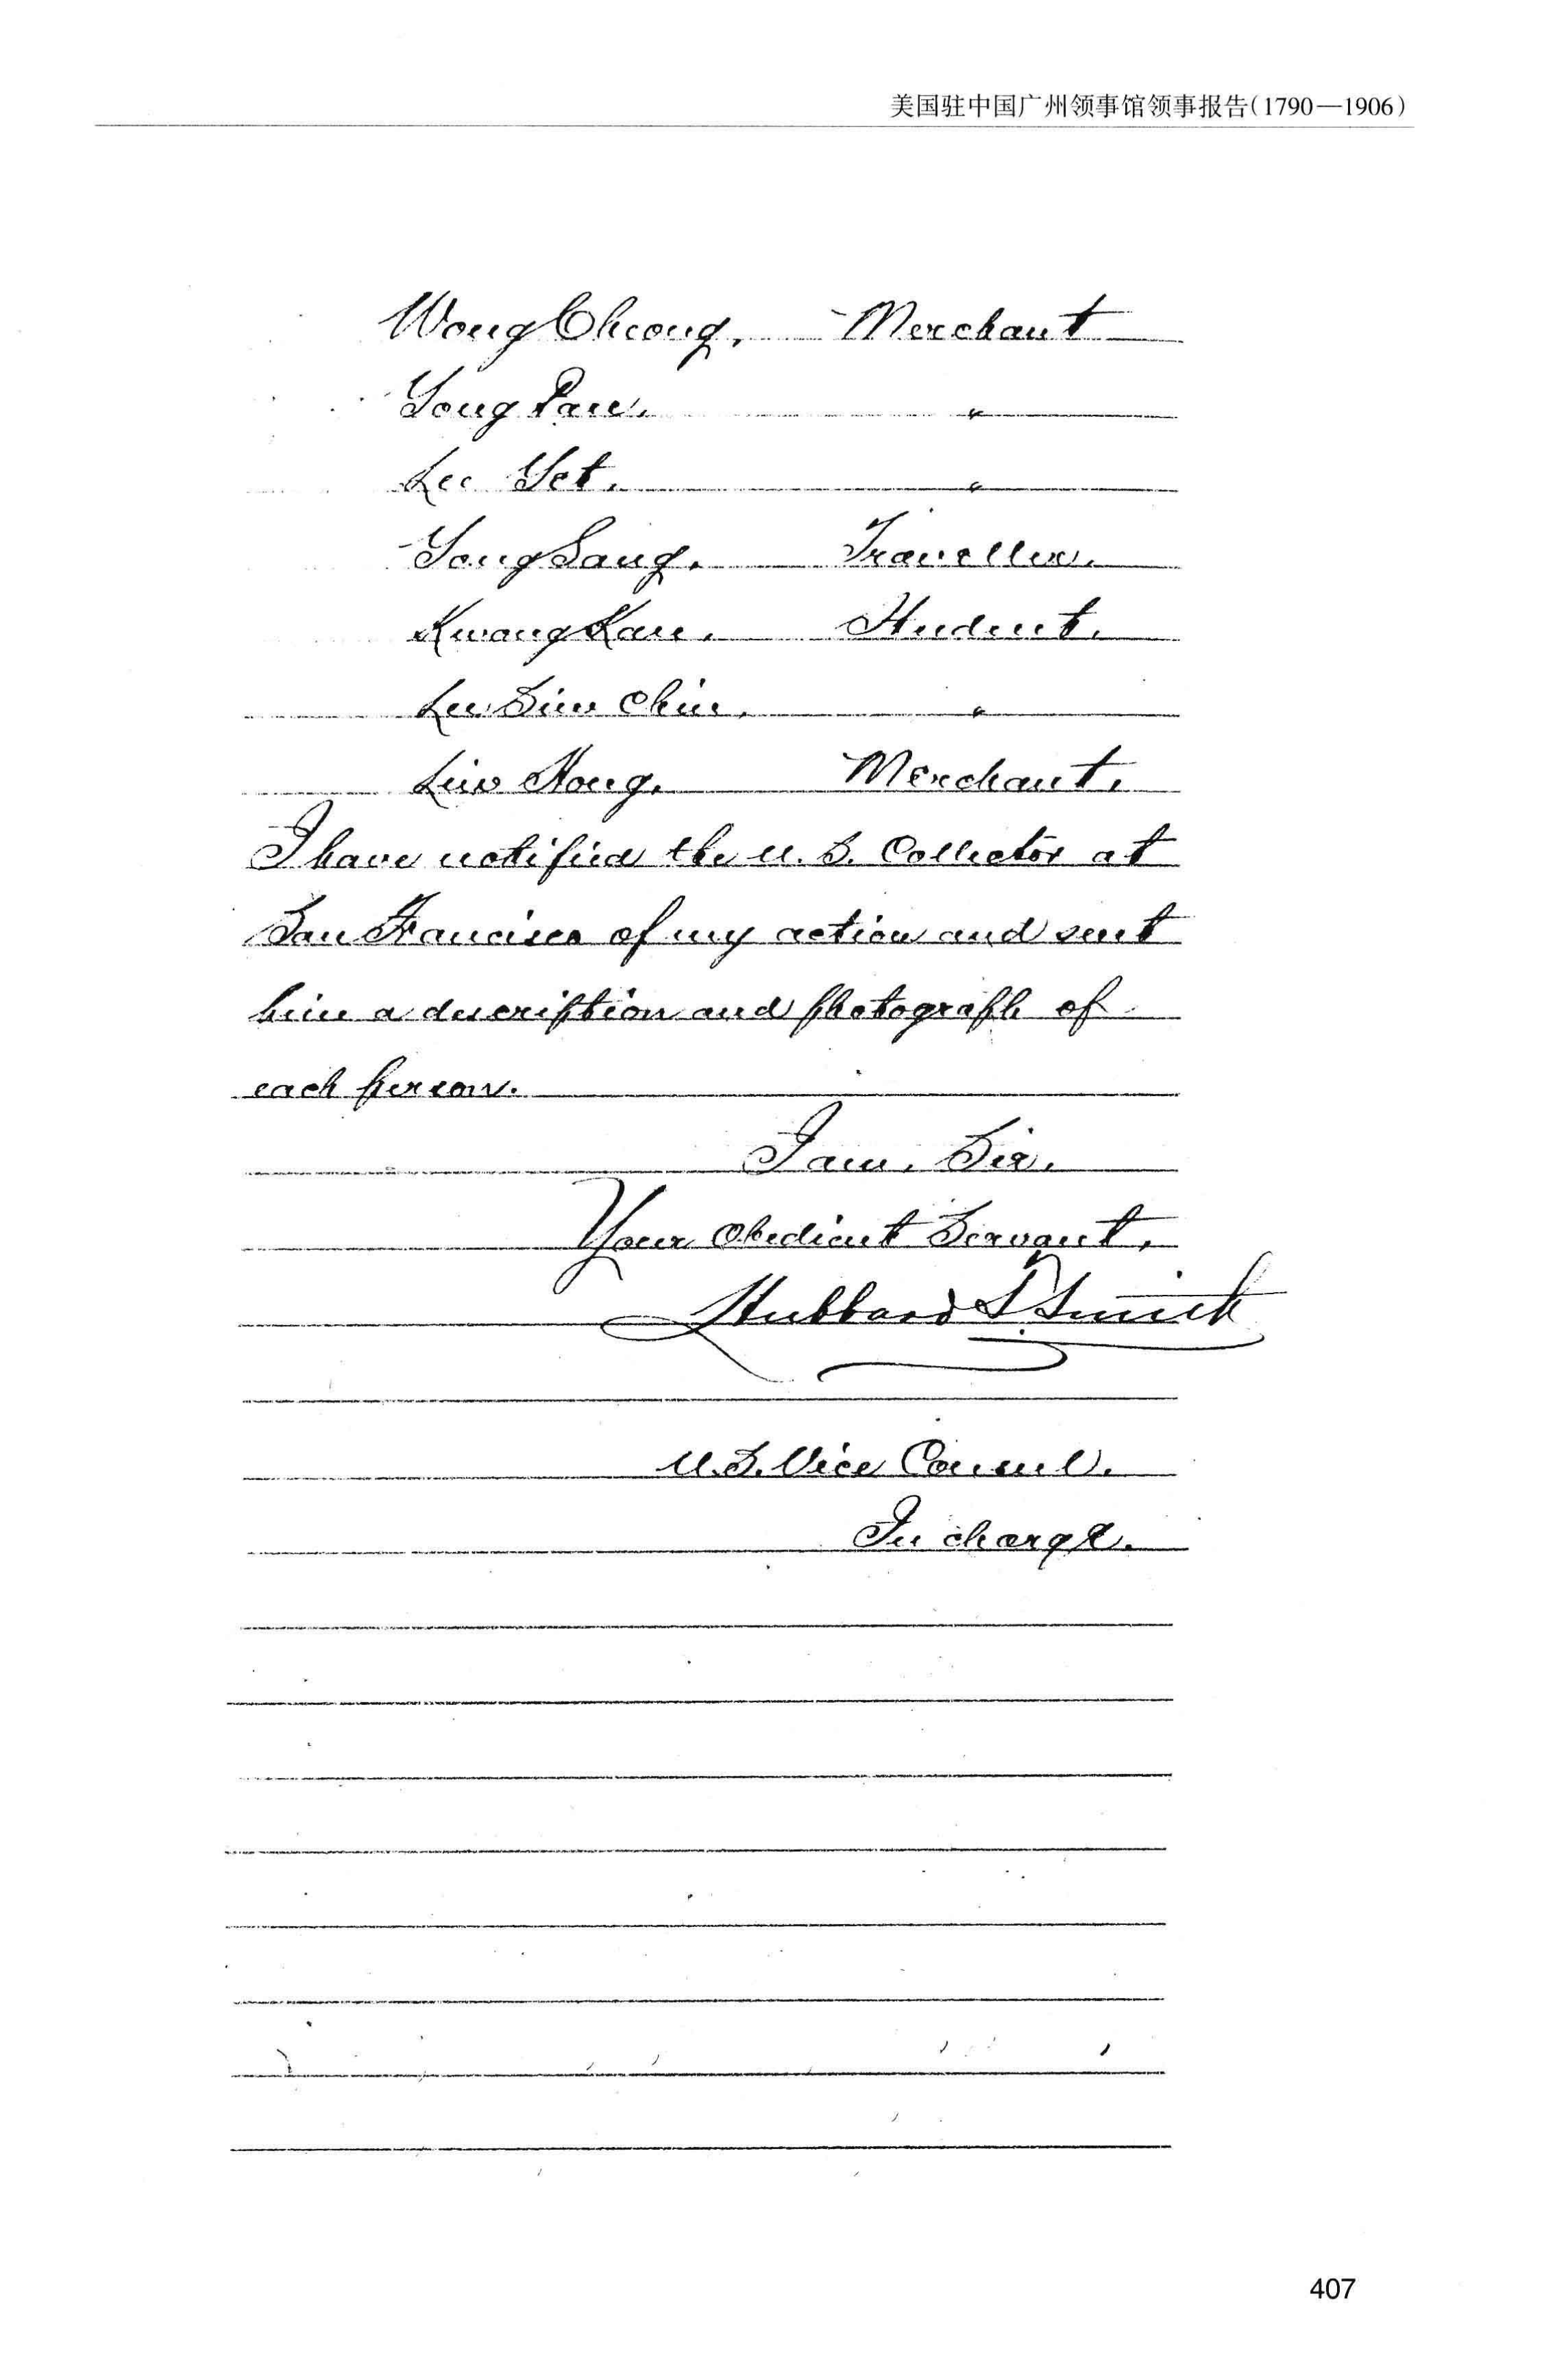 美国驻中国广州领事馆领事报告(1790—1906)
Wong Cheong, Merchant
Yong Pan, "
Lee Yet, "
Yong Sang, Traveller.
Kwang Kan, Student.
Lee Sim Chin, "
Lim Hong, Merchant.
I have notified the U.S. Collector at
San Francisco of my action and sent
him a description and photograph of
each person.
I am, Sir,
Your Obedient Servant,
Hubbard T Smith
U.S. Vice Consul.
In charge.
407